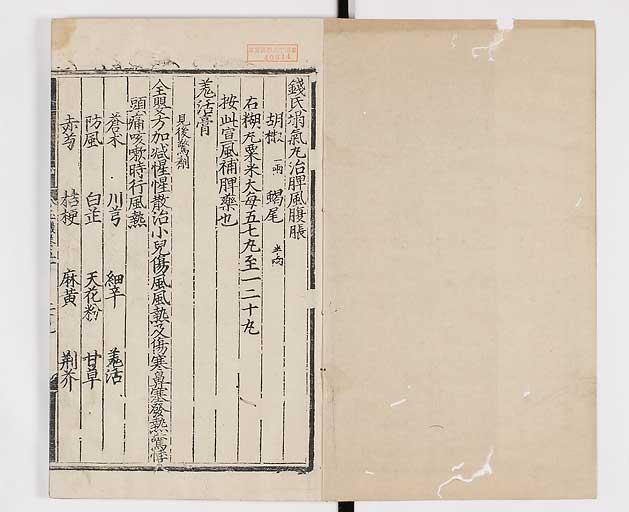 錢氏塌氣丸治脾風腹脹
胡椒 一兩 蝎尾 半兩
右糊丸粟米大每五七丸至一二十丸
按此宣風補脾藥也
羗活膏
見後驚劑
全嬰方加减惺惺散治小兒傷風風熱及傷寒鼻塞發熱驚悸
頭痛咳嗽時行風熱
蒼术 川芎 細辛 羗活
防風 白芷 天花粉 甘草
赤芍 桔梗 麻黄 荆芥
40814